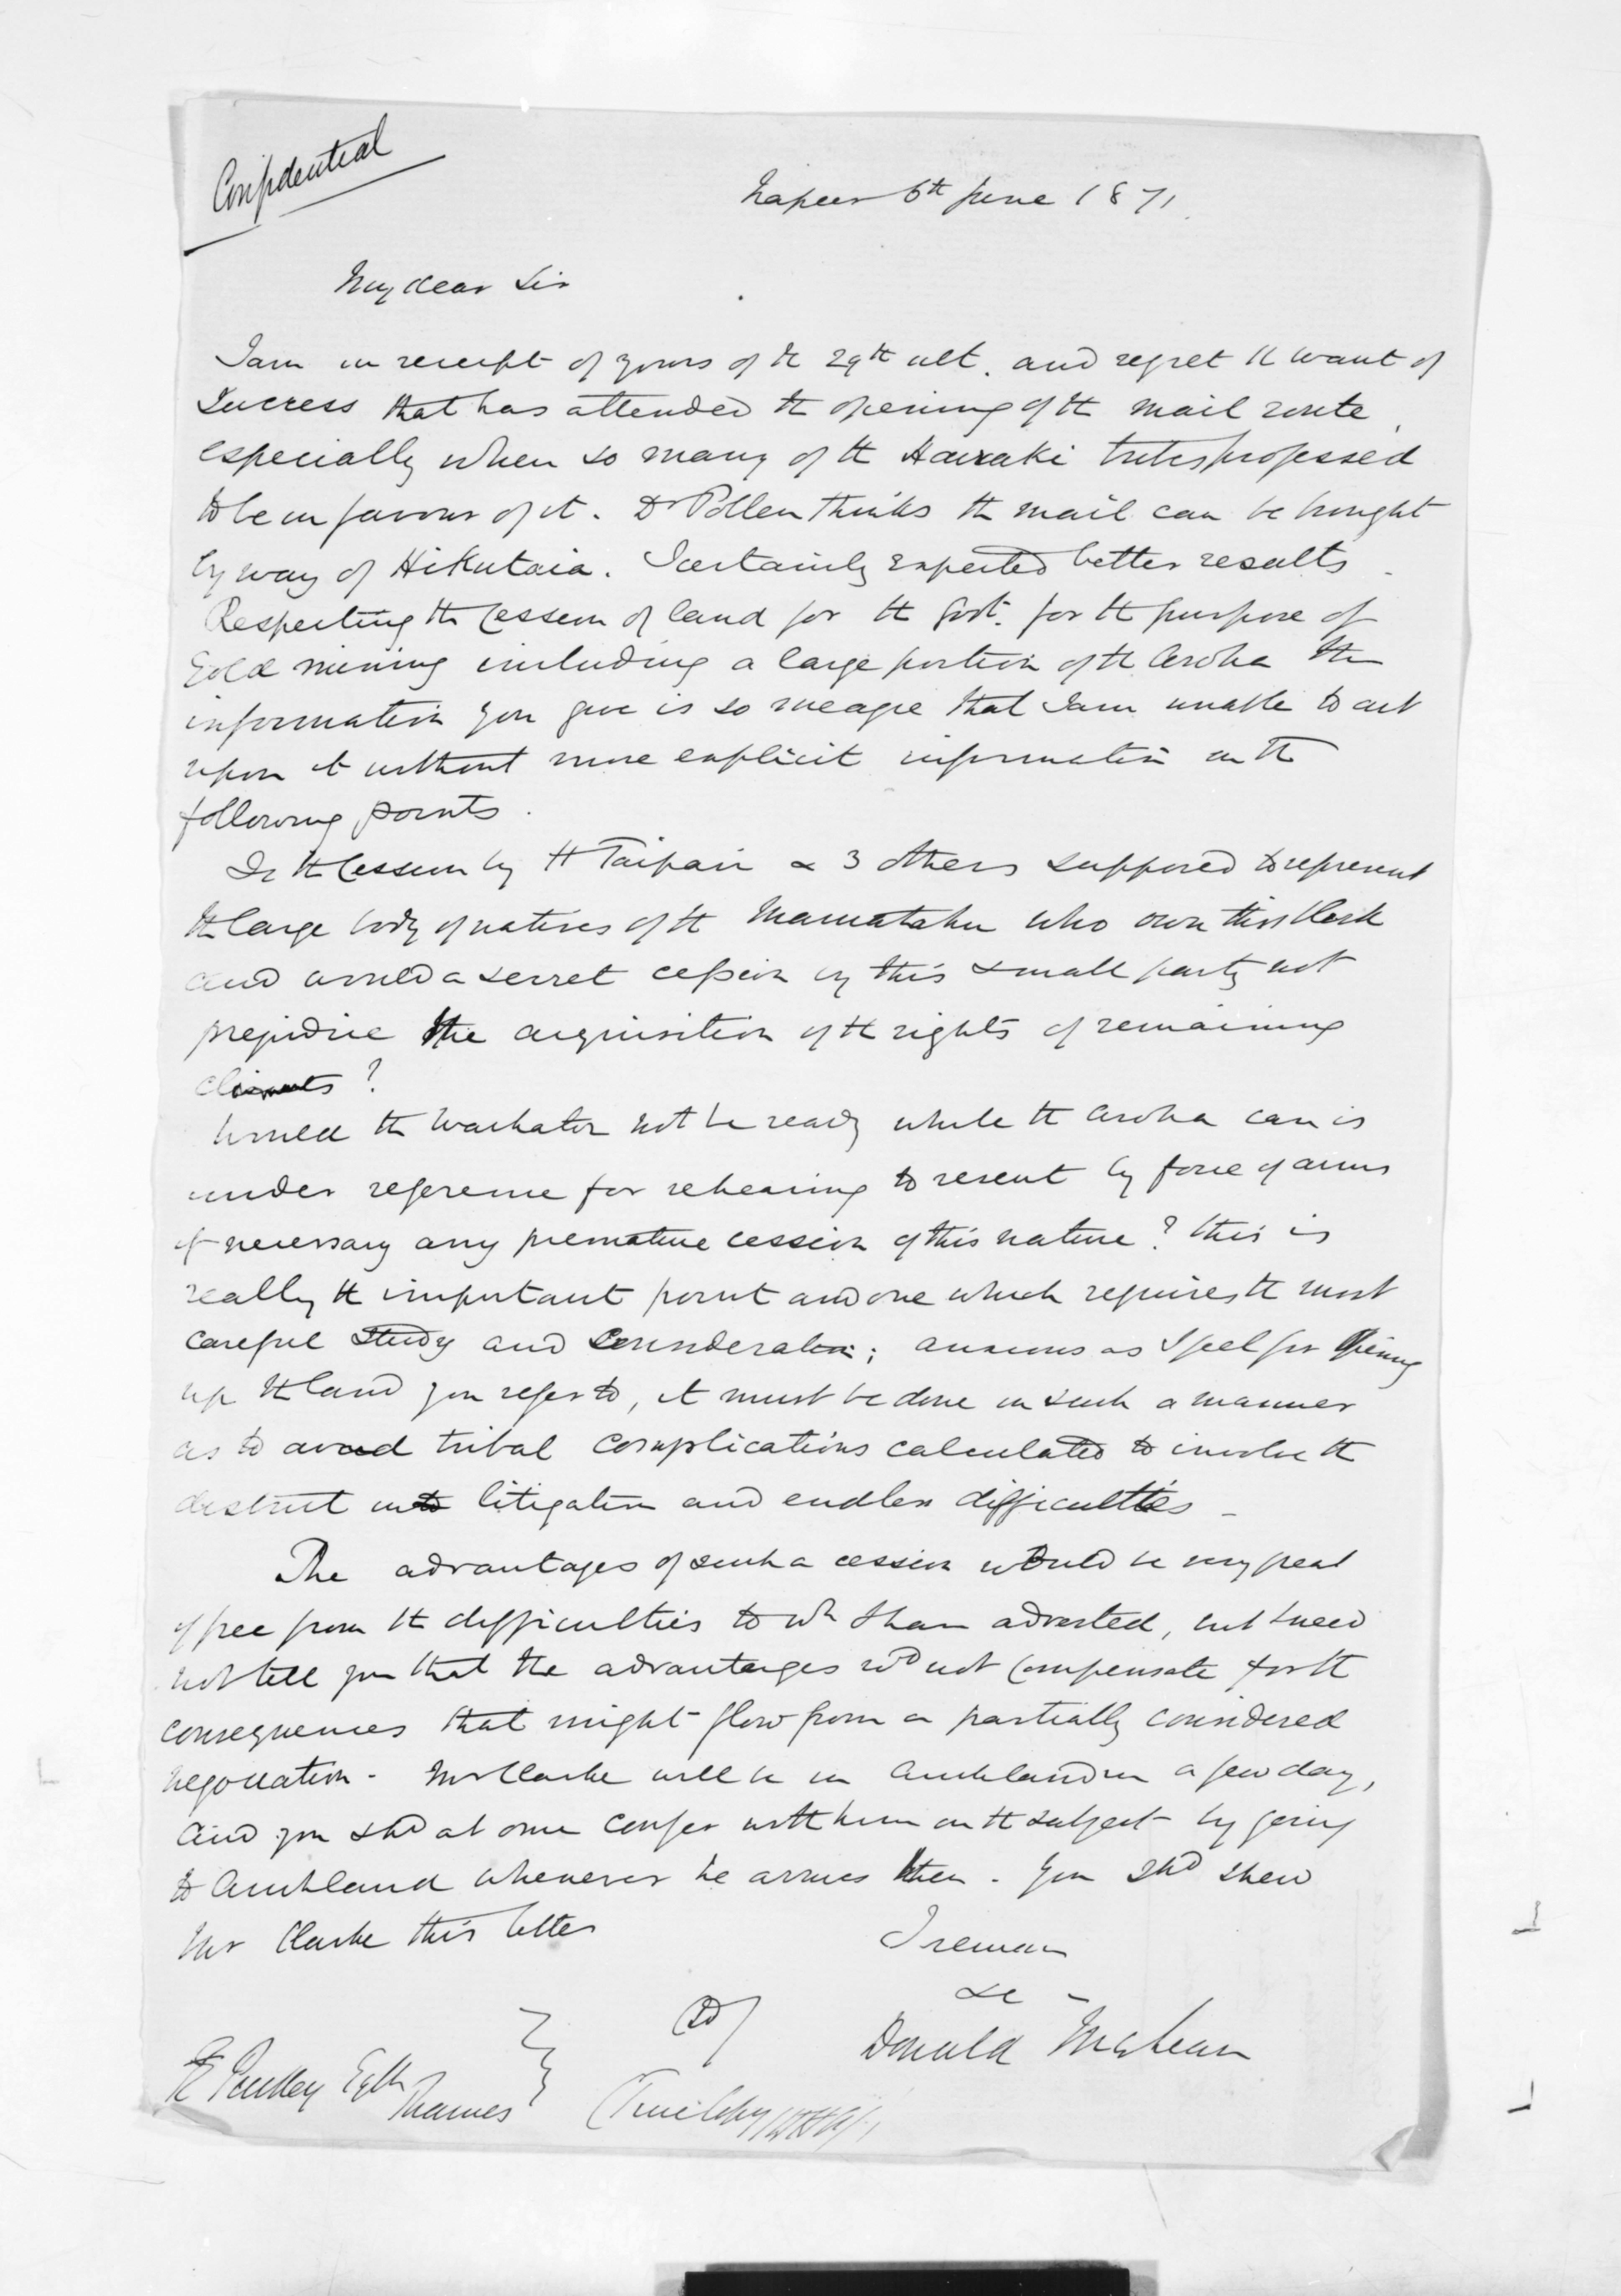 Confidential
Napier 6th June 1871.
My dear Sir
I am in receipt of yours of the 29th ult. and regret the want of
success that has attended the opening of the mail route,
especially when so many of the Hauraki tribes professed
to be in favour of it. Dr Pollen thinks the mail can be brought
by way of Hikutaia. I certainly expected better results -
Respecting the cession of land for the Govt. for the purpose of
Gold mining including a large portion of the Aroha the
information you give is so meagre that I am unable to act
upon it without more explicit information on the
following points.
Is the cession by H Taipari & 3 others supposed to represent
the large body of natives of the Marutuahu who own this block
and would a secret cession by this small party not
prejudice the acquisition of the rights of remaining
claimants?
Would the Waikatos not be ready while the Aroha case is
under reference for rehearing to resent by force of arms
if necessary any premature cession of this nature? this is
really the important point and one which requires the most
careful study and consideration; anxious as I feel for opening
up the land you refer to, it must be done in such a manner
as to avoid tribal complications calculated to involve the
district into litigation and endless difficulties -
The advantages of such a cession would be very great
if free from the difficulties to wh I have adverted, but I need
not tell you that the advantages wd not compensate for the
consequences that might flow from a partially considered
negotiation - Mr Clarke will be in Auckland in a few days,
and you shd at once confer with him on the subject by going
to Auckland whenever he arrives there. You shd shew
Mr Clarke this letter
I remain
&c -
Donald McLean
E Puckey Esqre
Thames
(True Copy